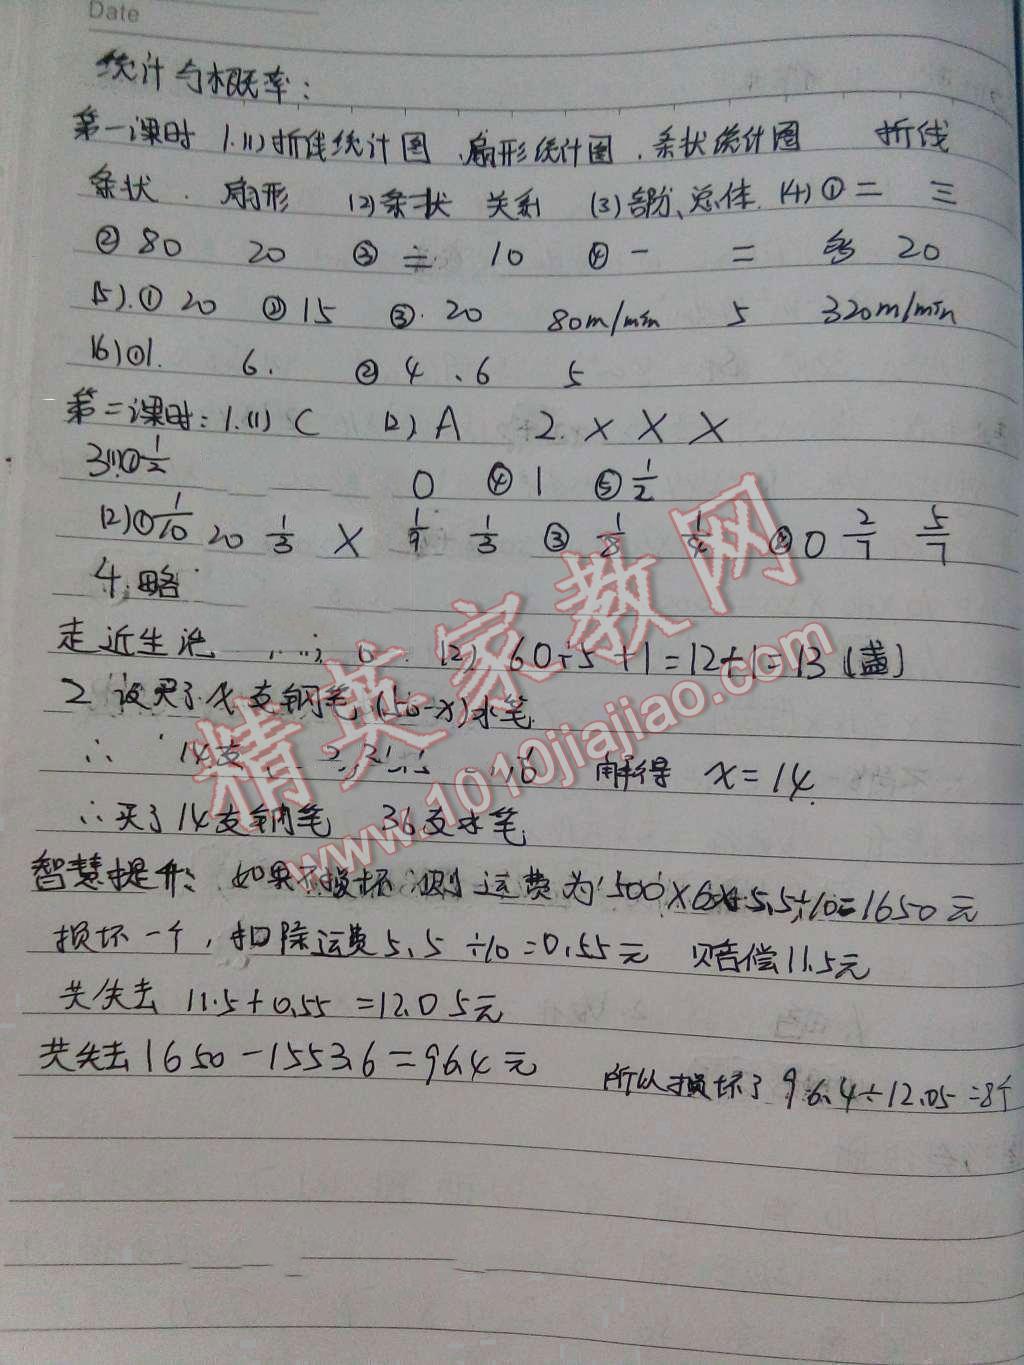 Date
统计与概率:
第一课时 1.(1)折线统计图、扇形统计图、条状统计图 折线
条状、扇形 (2)条状 关系 (3)部分、总体 (4)①二 三
②80 20 ③ 10 ④一 二 多 20
(5).①20 ②15 ③.20 80m/min 5 320m/min
(6)①1. 6. ②4、6 5
第二课时:1.(1)C (2)A 2.× × ×
3(1)①1/2 0 ④1 ⑤1/2
(2)①1/10 20 1/3 × 1/9 1/3 ③1/8 1/4 0 2/7 5/7
4.略
走近生活 (2) 60÷5+1=12+1=13(盏)
2 设买了x支钢笔(50-x)水笔
∴ 14支 解得 x=14.
∴买了14支钢笔 36支水笔
智慧提升: 如果不损坏 则运费为 500×6×5.5÷10=1650元
损坏一个,扣除运费5.5÷10=0.55元 赔偿11.5元
共失去 11.5+0.55=12.05元
共失去1650-1553.6=96.4元
所以损坏了96.4÷12.05=8个
精英家教网
www.1010jiajiao.com